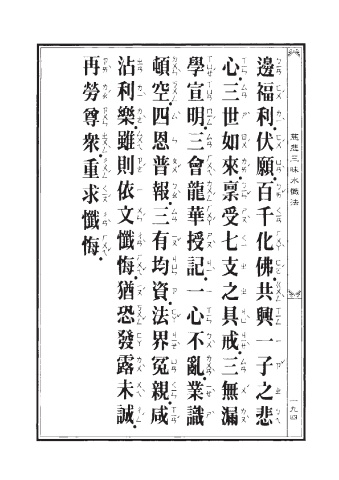 慈悲三昧水懺法
一九四
邊福利伏願百千化佛共興一子之悲
心三世如來稟受七支之具戒三無漏
學宣明三會龍華授記一心不亂業識
頓空四恩普報三有均資法界冤親咸
沾利樂雖則依文懺悔猶恐發露未誠
再勞尊眾重求懺悔